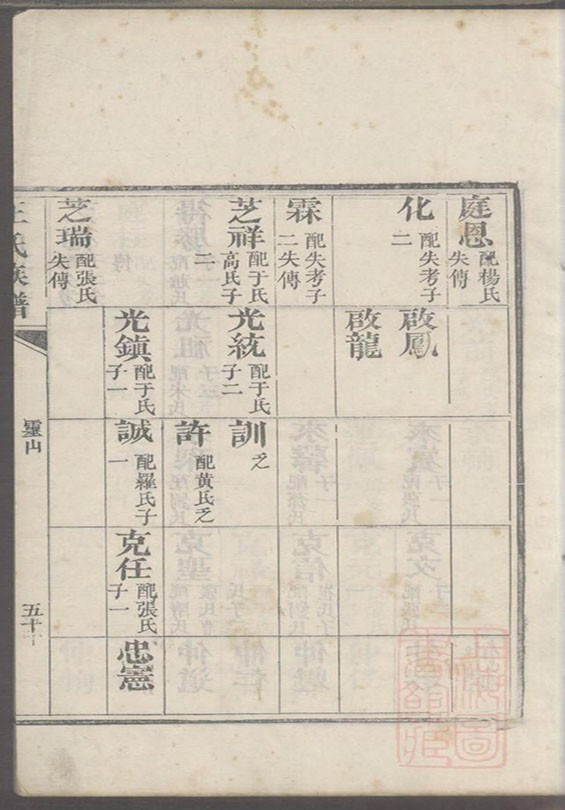 庭恩 配楊氏
失傳
化 配失考子
二
啟鳳
啟龍
霖 配失考子
二失傳
芝祥 配于氏
高氏子
二
光統 配于氏
子二
訓 乏
許 配黄氏乏
光鎮 配于氏
子一
誠 配羅氏子
一
克任 配張氏
子一
忠憲
芝瑞 配張氏
失傳
王氏族譜
靈山
五十